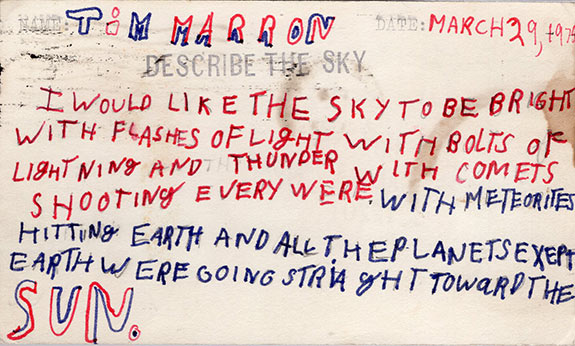 NAME: TiM MARRON DATE: MARCH 29, 1975
DESCRIBE THE SKY
I WOULD LIKE THE SKY TO BE BRIGHT
WITH FLASHES OF LIGHT WITH BOLTS OF
LIGHTNING AND THUNDER WITH COMETS
SHOOTING EVERY WERE. WITH METEORITES
HITTING EARTH AND ALL THE PLANETS EXEPT
EARTH WERE GOING STRIAGHT TOWARD THE
SUN.